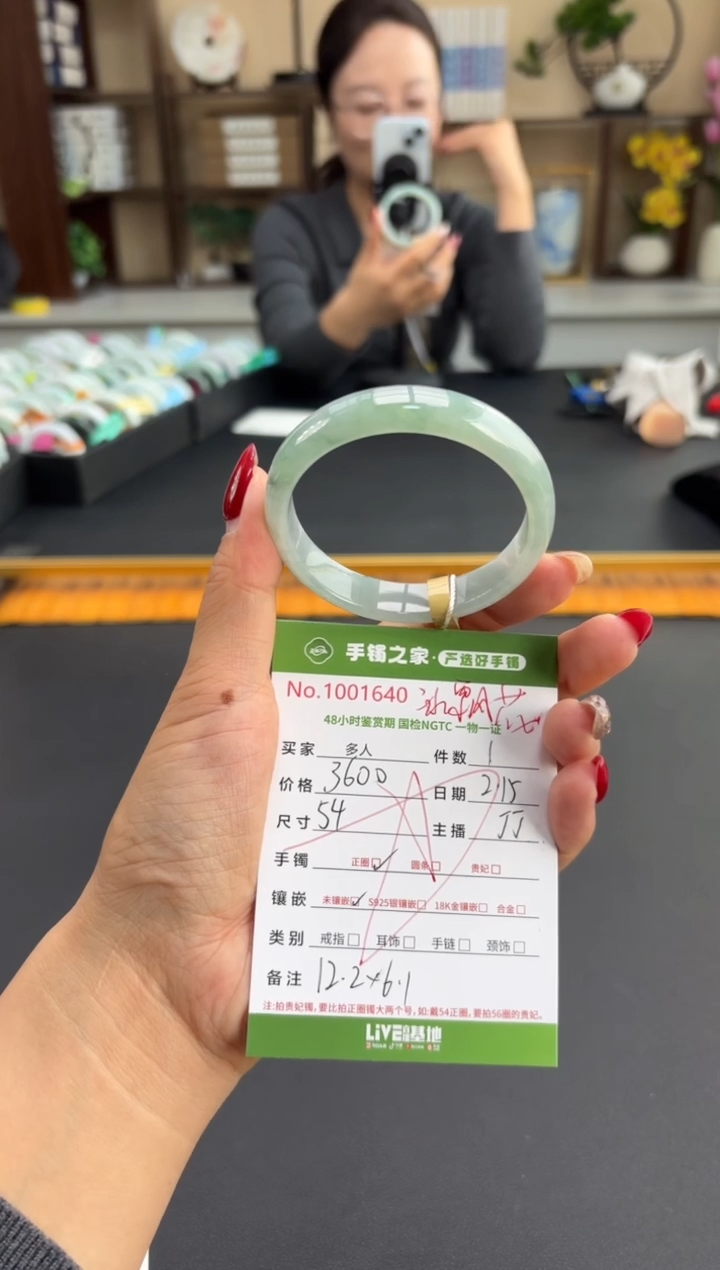 手镯之家·严选好手镯
No.1001640 冰飘花
48小时鉴赏期 国检NGTC 一物一证
买家 多人 件数 1
价格 3600 日期 2.15
尺寸 54 主播 JJ
手镯 正圈☑ 圆条☐ 贵妃☐
镶嵌 未镶嵌☑ S925银镶嵌☐ 18K金镶嵌☐ 合金☐
类别 戒指☐ 耳饰☐ 手链☐ 颈饰☐
备注 12.2×6.1
注:拍贵妃镯,要比拍正圈镯大两个号,如:戴54正圈,要拍56圈的贵妃。
LiVE 基地